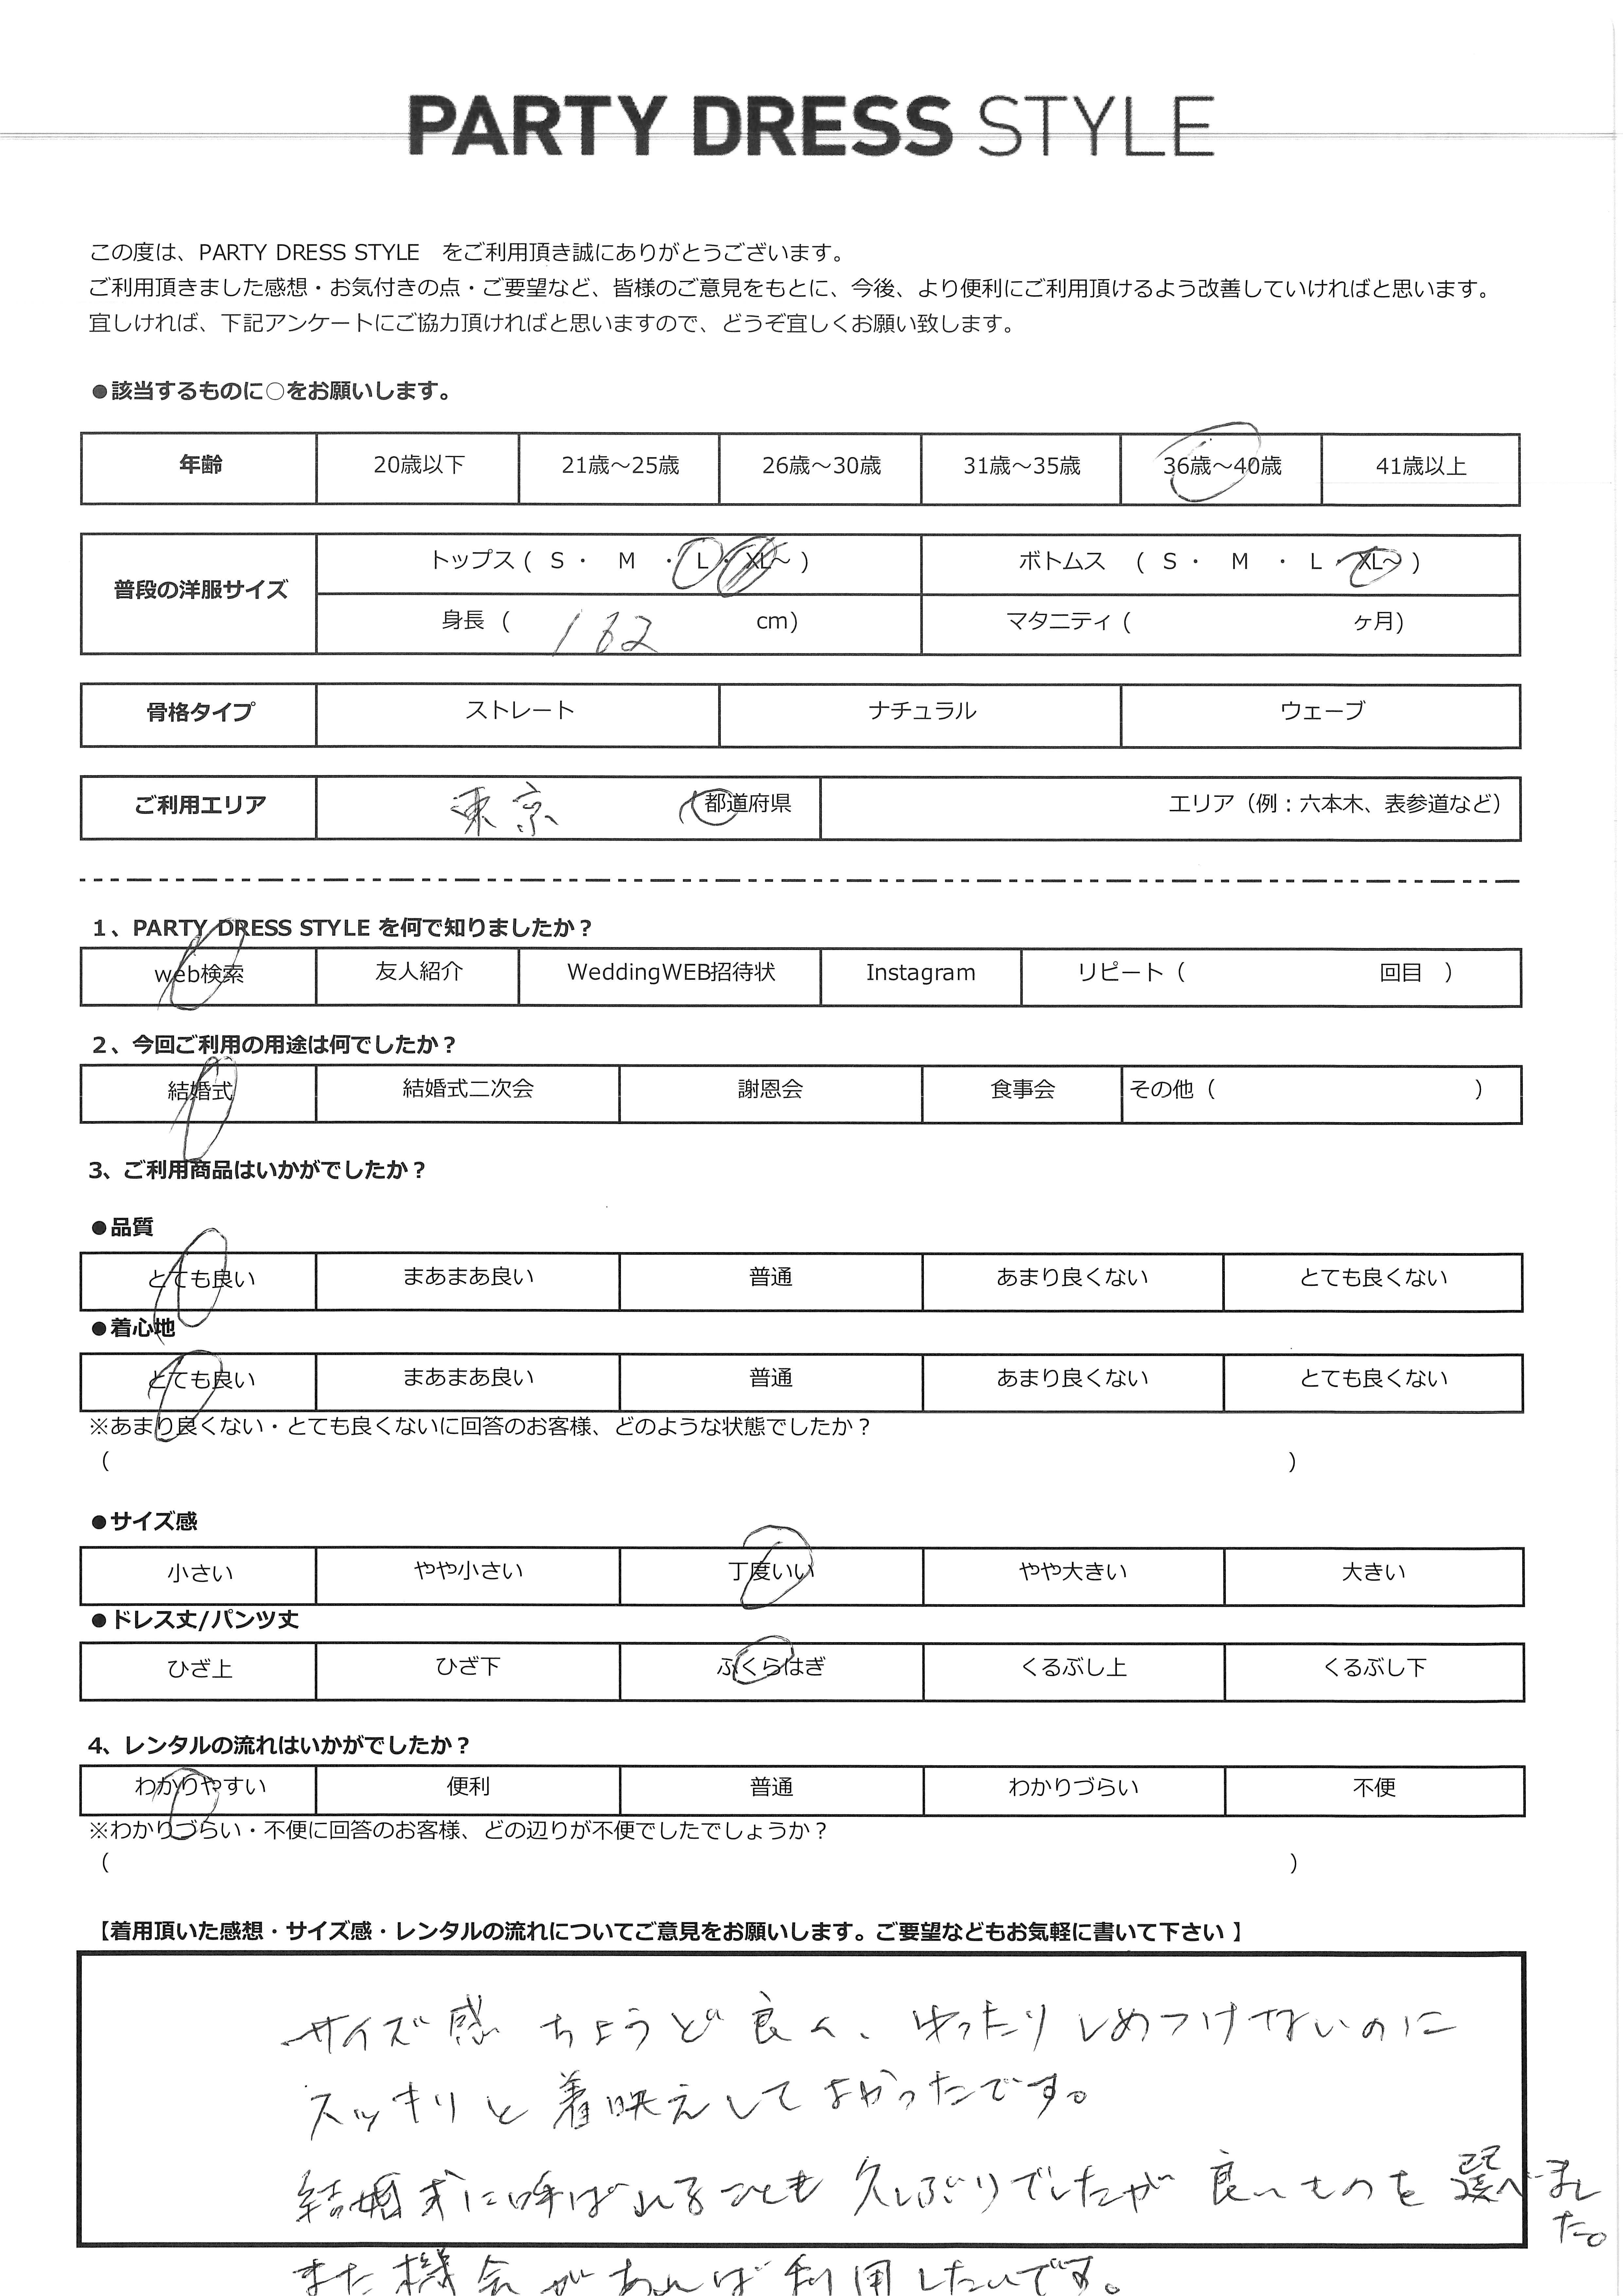 PARTY DRESS STYLE
この度は、PARTY DRESS STYLE をご利用頂き誠にありがとうございます。
ご利用頂きました感想・お気付きの点・ご要望など、皆様のご意見をもとに、今後、より便利にご利用頂けるよう改善していければと思います。
宜しければ、下記アンケートにご協力頂ければと思いますので、どうぞ宜しくお願い致します。
●該当するものに○をお願いします。
年齢 20歳以下 21歳～25歳 26歳～30歳 31歳～35歳 36歳～40歳 41歳以上
普段の洋服サイズ
トップス ( S ・ M ・ L ・ XL～ ) ボトムス ( S ・ M ・ L ・ XL～ )
身長 ( 162 cm) マタニティ ( ヶ月)
骨格タイプ ストレート ナチュラル ウェーブ
ご利用エリア 東京 都道府県 エリア（例：六本木、表参道など）
1、PARTY DRESS STYLE を何で知りましたか？
web検索 友人紹介 WeddingWEB招待状 Instagram リピート（ 回目 ）
2、今回ご利用の用途は何でしたか？
結婚式 結婚式二次会 謝恩会 食事会 その他（ ）
3、ご利用商品はいかがでしたか？
●品質
とても良い まあまあ良い 普通 あまり良くない とても良くない
●着心地
とても良い まあまあ良い 普通 あまり良くない とても良くない
※あまり良くない・とても良くないに回答のお客様、どのような状態でしたか？
（ ）
●サイズ感
小さい やや小さい 丁度いい やや大きい 大きい
●ドレス丈/パンツ丈
ひざ上 ひざ下 ふくらはぎ くるぶし上 くるぶし下
4、レンタルの流れはいかがでしたか？
わかりやすい 便利 普通 わかりづらい 不便
※わかりづらい・不便に回答のお客様、どの辺りが不便でしたでしょうか？
（ ）
【着用頂いた感想・サイズ感・レンタルの流れについてご意見をお願いします。ご要望などもお気軽に書いて下さい 】
サイズ感 ちょうど良く、ゆったりしめつけないのに
スッキリと着映えしてよかったです。
結婚式に呼ばれることも久しぶりでしたが良いものを選べました。
また機会があれば利用したいです。